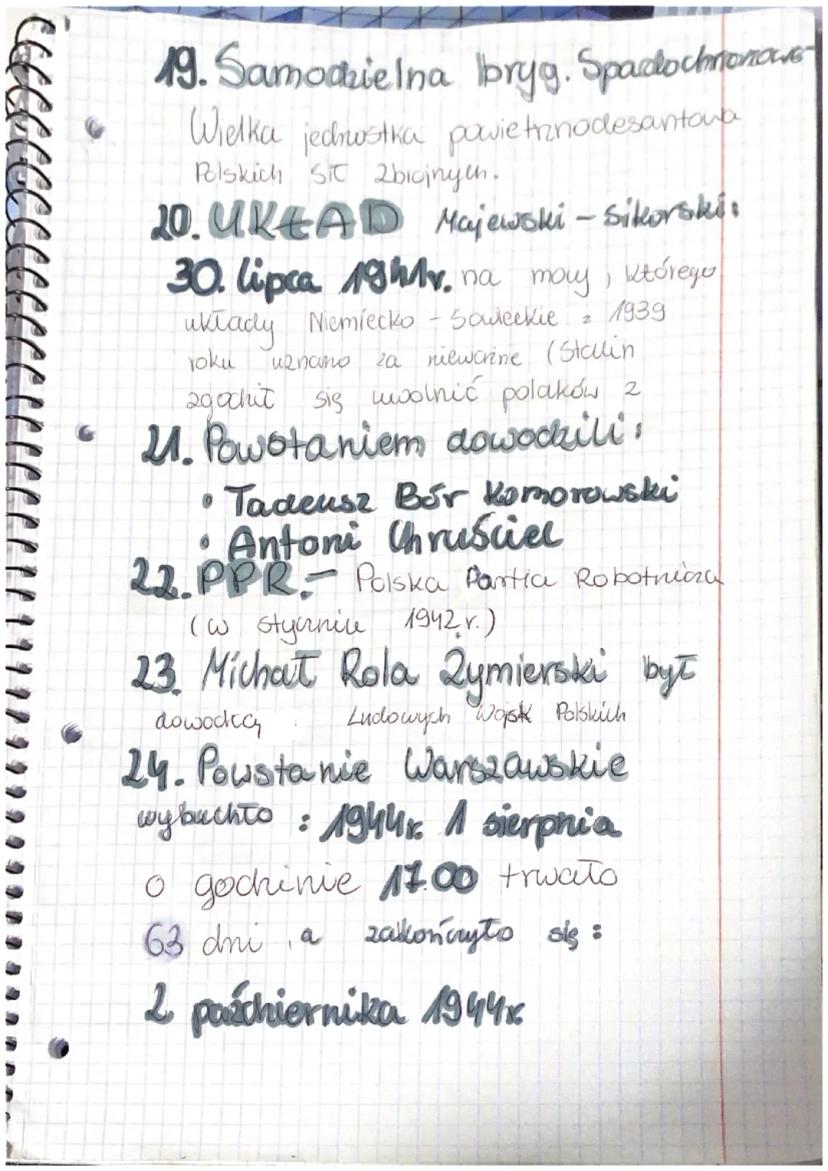 19. Samodzielna bryg. Spadochronowa
Wielka jednostka powietrznodesantowa
Polskich sił zbrojnych.
20. UKŁAD Majewski - Sikorski:
30. lipca 1941r. na mocy, którego
układy Niemiecko - Sowieckie z 1939
roku uznano za nieważne (Stalin
zgodził się uwolnić polaków z
21. Powstaniem dowodzili:
• Tadeusz Bór Komorowski
• Antoni Chruściel
22. PPR. - Polska Partia Robotnicza
(w styczniu 1942.r.)
23. Michał Rola Żymierski był
dowódcą Ludowych Wojsk Polskich
24. Powstanie Warszawskie
wybuchło : 1944r. 1 sierpnia
o godzinie 17.00 trwało
63 dni , a zakończyło się :
2 października 1944r.